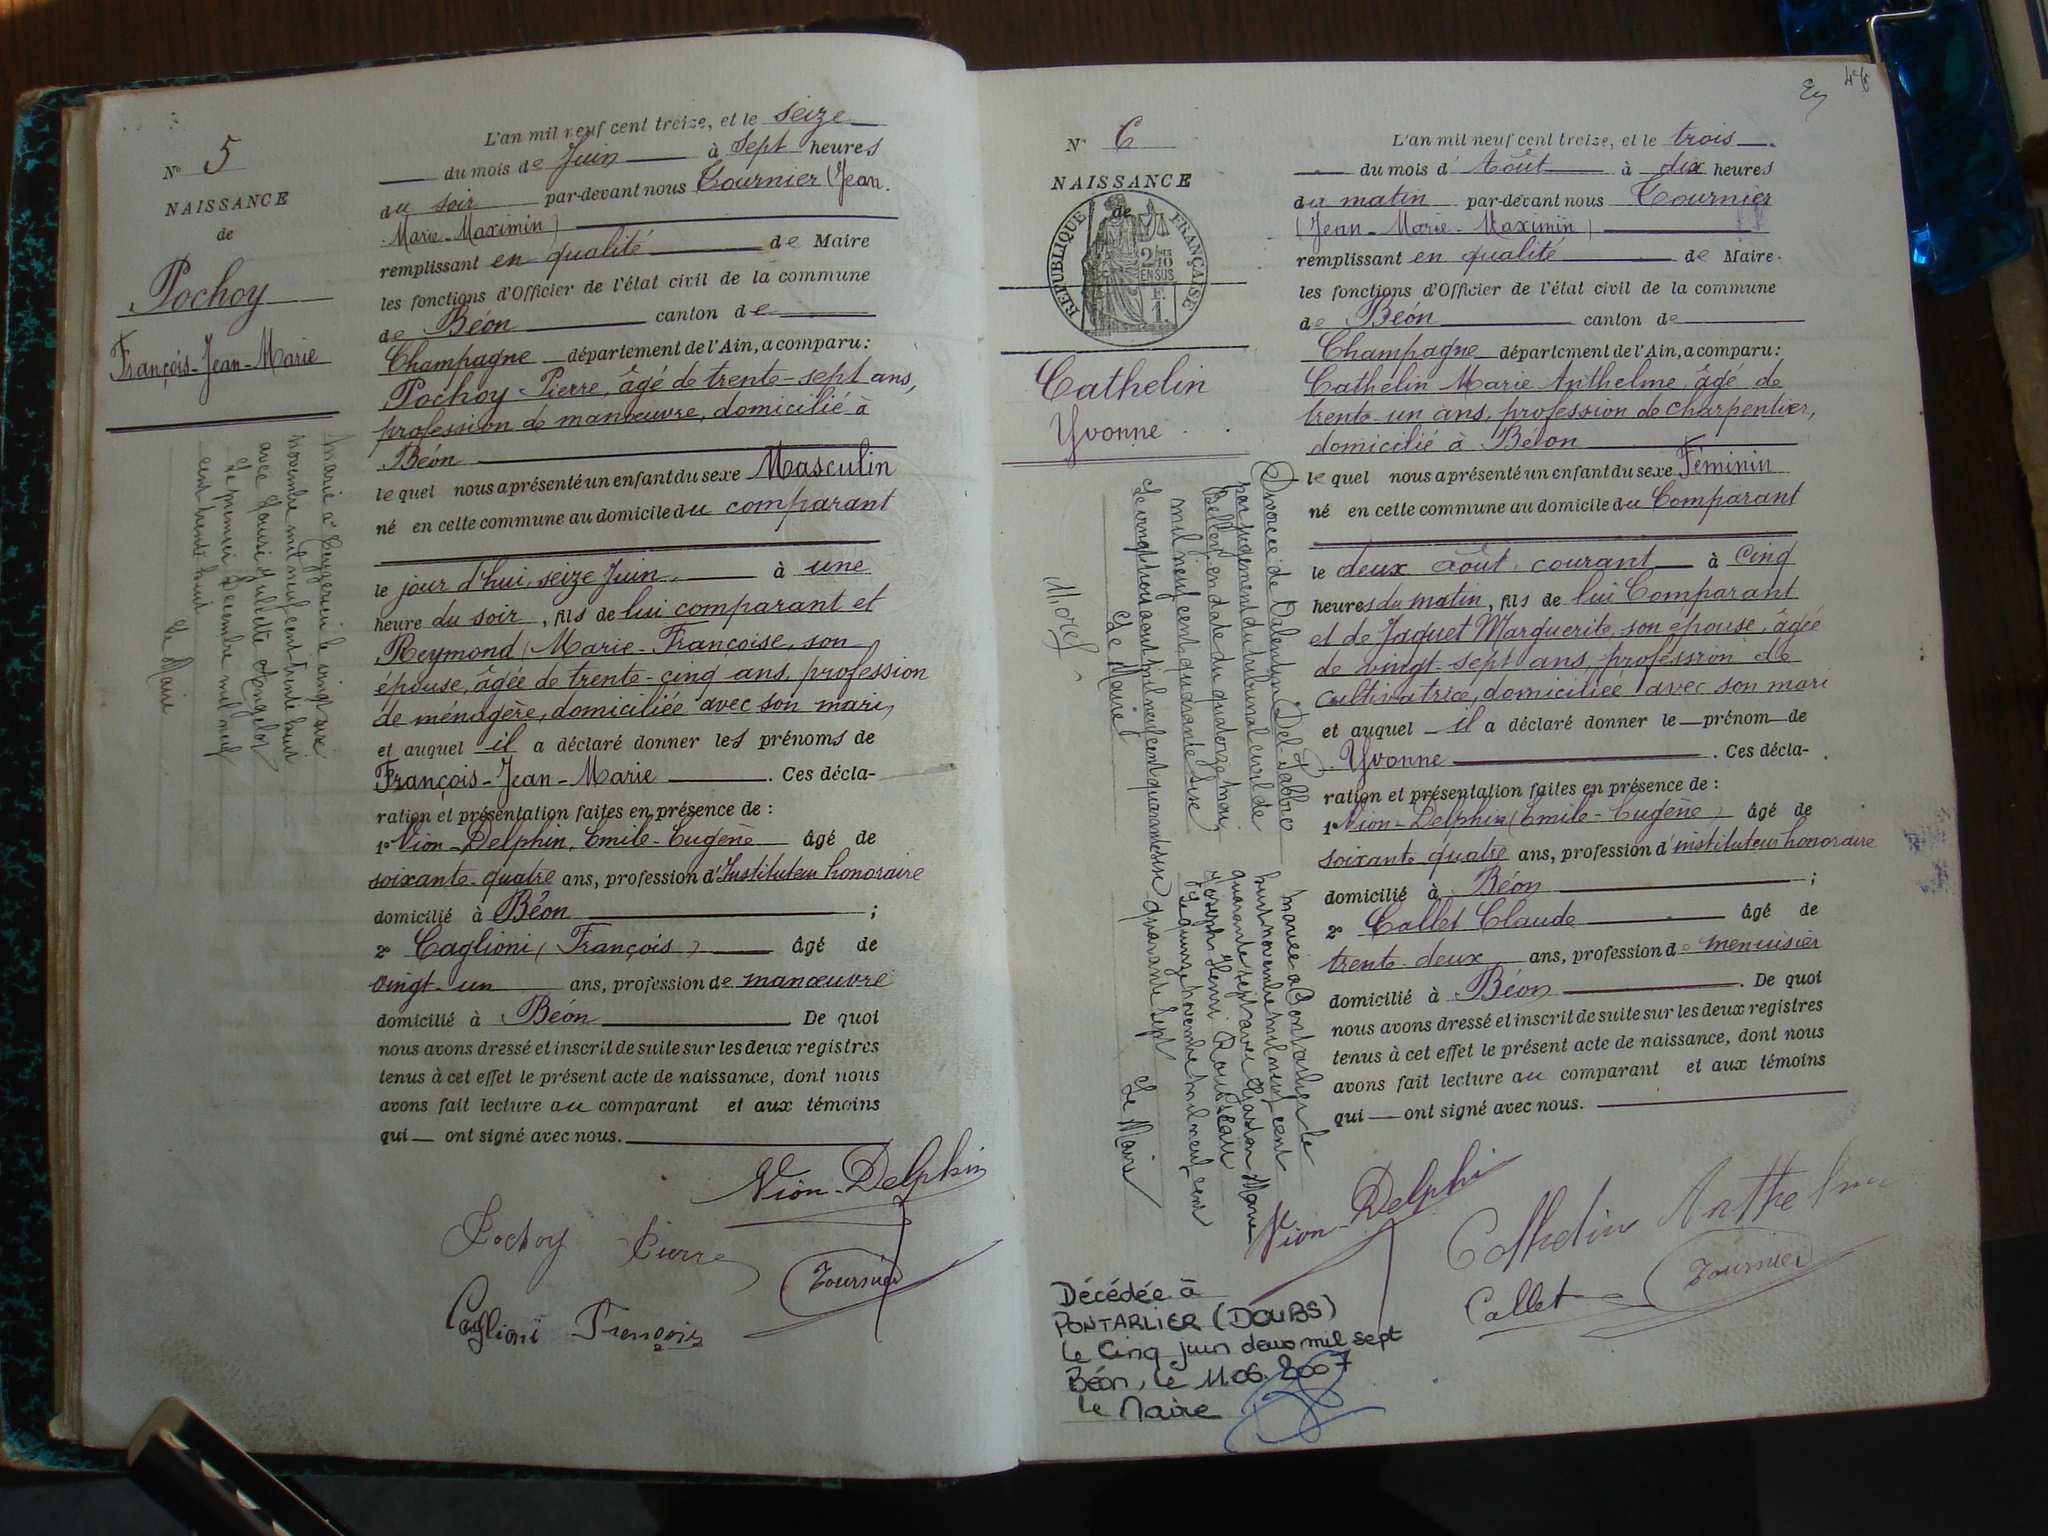 N° 5
NAISSANCE
de
Pochoy
François-Jean-Marie
marié à Ceyzérieu le vingt six
novembre mil neuf cent trente huit
avec Louise Juliette Angelot
Le premier décembre mil neuf
cent trente huit Le Maire
L'an mil neuf cent treize, et le seize
du mois de Juin à sept heures
du soir par-devant nous Tournier (Jean-
Marie-Maximin)
remplissant en qualité de Maire
les fonctions d'Officier de l'état civil de la commune
de Béon canton de
Champagne département de l'Ain, a comparu :
Pochoy Pierre, âgé de trente-sept ans,
profession de manœuvre, domicilié à
Béon
lequel nous a présenté un enfant du sexe Masculin
né en cette commune au domicile du comparant
le jour d'hui, seize Juin, à une
heure du soir, fils de lui comparant et
Reymond (Marie-Françoise, son
épouse, âgée de trente-cinq ans, profession
de ménagère, domiciliée avec son mari,
et auquel il a déclaré donner les prénoms de
François-Jean-Marie. Ces décla-
ration et présentation faites en présence de :
1° Vion-Delphin, Emile-Eugène âgé de
soixante-quatre ans, profession d'Instituteur honoraire
domicilié à Béon ;
2° Caglioni (François) âgé de
vingt-un ans, profession de manœuvre
domicilié à Béon De quoi
nous avons dressé et inscrit de suite sur les deux registres
tenus à cet effet le présent acte de naissance, dont nous
avons fait lecture au comparant et aux témoins
qui — ont signé avec nous.
Vion-Delphin
Pochoy Pierre
Tournier
Caglioni François
N° 6
NAISSANCE
de
RÉPUBLIQUE FRANÇAISE
2/10
EN SUS
F.
1.
Cathelin
Yvonne
Divorcée de Valentyn Del Fabbro
par jugement du tribunal civil de
Belley en date du quatorze mai
mil neuf cent quarante six
Le vingt huit août mil neuf cent quarante six
Le Maire
mariée à Pontarlier le
huit novembre mil neuf cent
quarante sept avec Gaston Marie
Joseph Henri Rousseau
Le quinze novembre mil neuf cent
quarante sept Le Maire
L'an mil neuf cent treize, et le trois
du mois d'Août à dix heures
du matin par-devant nous Tournier
(Jean-Marie-Maximin)
remplissant en qualité de Maire.
les fonctions d'Officier de l'état civil de la commune
de Béon canton de
Champagne département de l'Ain, a comparu :
Cathelin Marie Anthelme, âgé de
trente-un ans, profession de charpentier,
domicilié à Béon
lequel nous a présenté un enfant du sexe Féminin
né en cette commune au domicile du Comparant
le deux août courant à cinq
heures du matin, fils de lui Comparant
et de Jaquet Marguerite, son épouse, âgée
de vingt-sept ans, profession de
cultivatrice, domiciliée avec son mari
et auquel il a déclaré donner le prénom de
Yvonne. Ces décla-
ration et présentation faites en présence de :
1° Vion-Delphin (Emile-Eugène) âgé de
soixante quatre ans, profession d'instituteur honoraire
domicilié à Béon ;
2° Callet Claude âgé de
trente-deux ans, profession de menuisier
domicilié à Béon. De quoi
nous avons dressé et inscrit de suite sur les deux registres
tenus à cet effet le présent acte de naissance, dont nous
avons fait lecture au comparant et aux témoins
qui — ont signé avec nous.
Vion-Delphin
Cathelin Anthelme
Callet
Tournier
Décédée à
PONTARLIER (DOUBS)
le Cinq juin deux mil sept
Béon, le 11.06.2007
le Maire